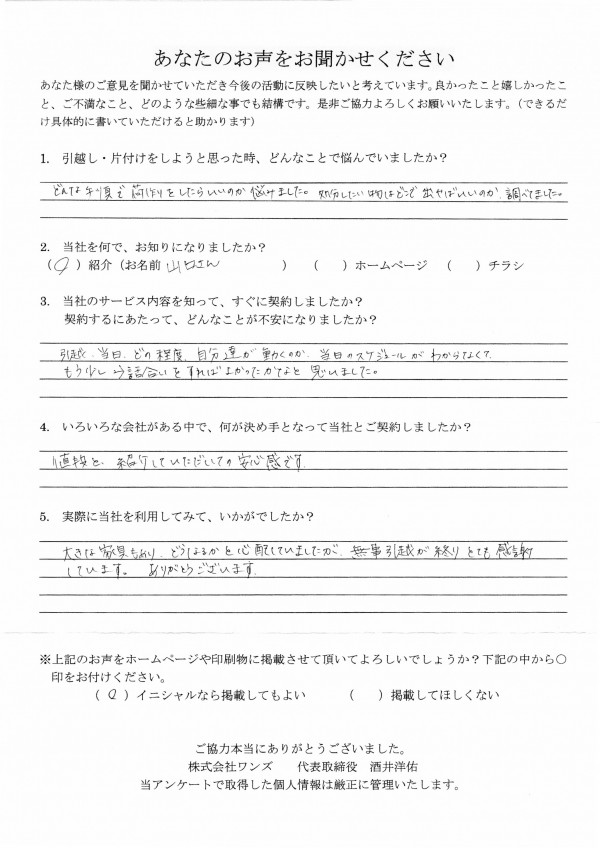 あなたのお声をお聞かせください
あなた様のご意見を聞かせていただき今後の活動に反映したいと考えています。良かったこと嬉しかったこ
と、ご不満なこと、どのような些細な事でも結構です。是非ご協力よろしくお願いいたします。（できるだ
け具体的に書いていただけると助かります）
1. 引越し・片付けをしようと思った時、どんなことで悩んでいましたか？
どんな手順で荷作りをしたらいいのか悩みました。処分したい物はどこで出せばいいのか、調べてました。
2. 当社を何で、お知りになりましたか？
（○）紹介（お名前 山口さん ） （ ）ホームページ （ ）チラシ
3. 当社のサービス内容を知って、すぐに契約しましたか？
契約するにあたって、どんなことが不安になりましたか？
引越、当日、どの程度、自分達が動くのか、当日のスケジュールがわからなくて、
もう少し話合いをすればよかったかなと思いました。
4. いろいろな会社がある中で、何が決め手となって当社とご契約しましたか？
値段と、紹介していただいての安心感です。
5. 実際に当社を利用してみて、いかがでしたか？
大きな家具もあり、どうなるかと心配していましたが、無事引越が終りとても感謝
しています。 ありがとうございます。
※上記のお声をホームページや印刷物に掲載させて頂いてよろしいでしょうか？下記の中から○
印をお付けください。
（○）イニシャルなら掲載してもよい （ ）掲載してほしくない
ご協力本当にありがとうございました。
株式会社ワンズ 代表取締役 酒井洋佑
当アンケートで取得した個人情報は厳正に管理いたします。